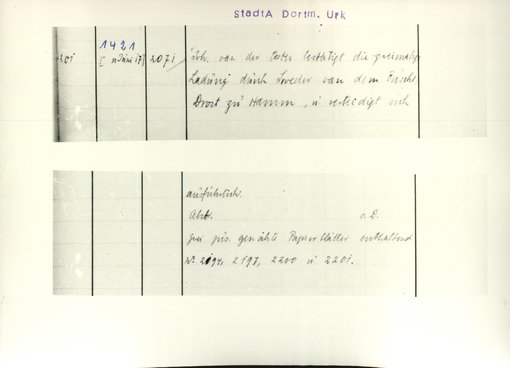 StadtA Dortm. Urk
1421
201 [n Juni 17] 2071 Joh. van der Osten bestätigt die zweimalige
Ladung durch Seveder van dem Busche
Drost zu Hamm, u verteidigt sich
ausführlich.
Abschr. o. D.
zwei zus. genähte Papierblätter enthaltend
Nº 2194, 2198, 2200 u 2201.